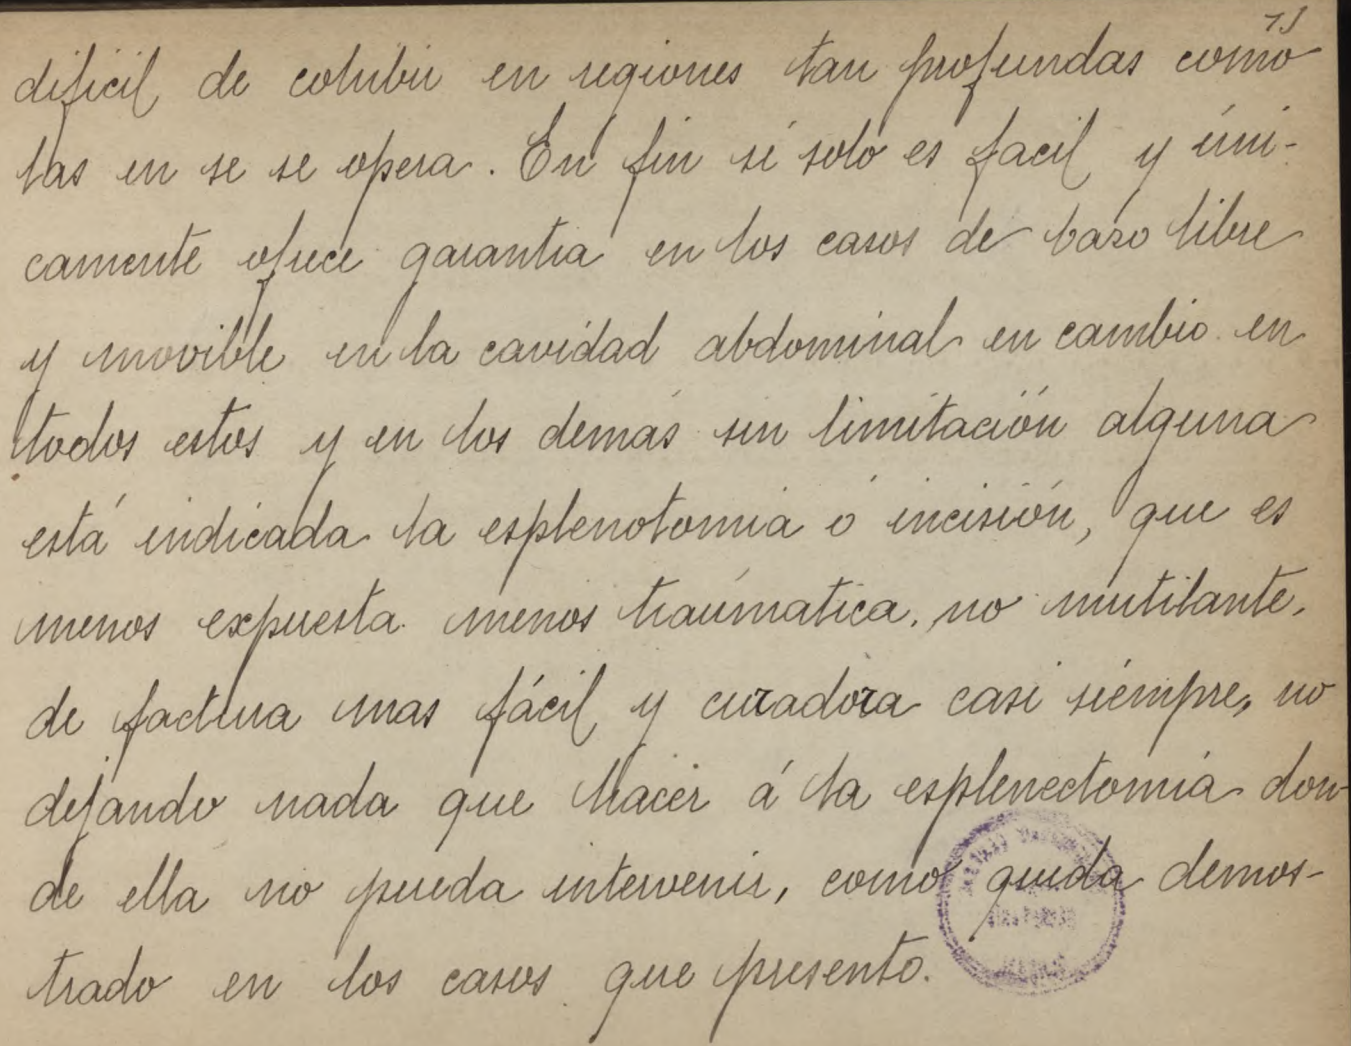 dificil de cohibir en regiones tan profundas como
las en se se opera. En fin si solo es facil y úni-
camente ofrece garantia en los casos de bazo libre
y movible en la cavidad abdominal en cambio en
todos estos y en los demás sin limitación alguna
está indicada la esplenotomia ó incisión, que es
menos expuesta menos traúmatica, no mutilante,
de factura mas fácil y curadora casi siémpre, no
dejando nada que hacer á la esplenectomia don-
de ella no pueda intervenir, como queda demos-
trado en los casos que presento.